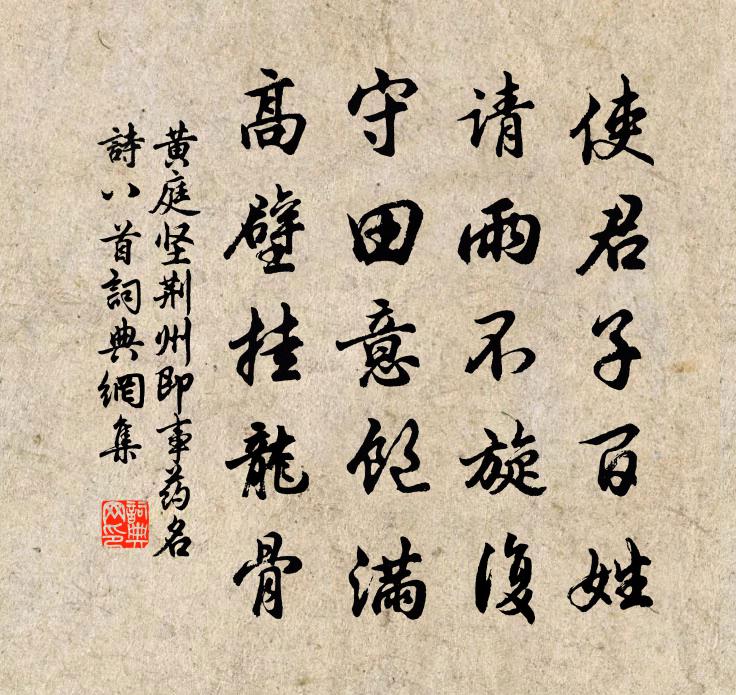 使君子百姓
请雨不旋復
守田意飽满
高壁挂龍骨
黄庭坚荆州即事药名
詩八首詞典網集
詞典网印